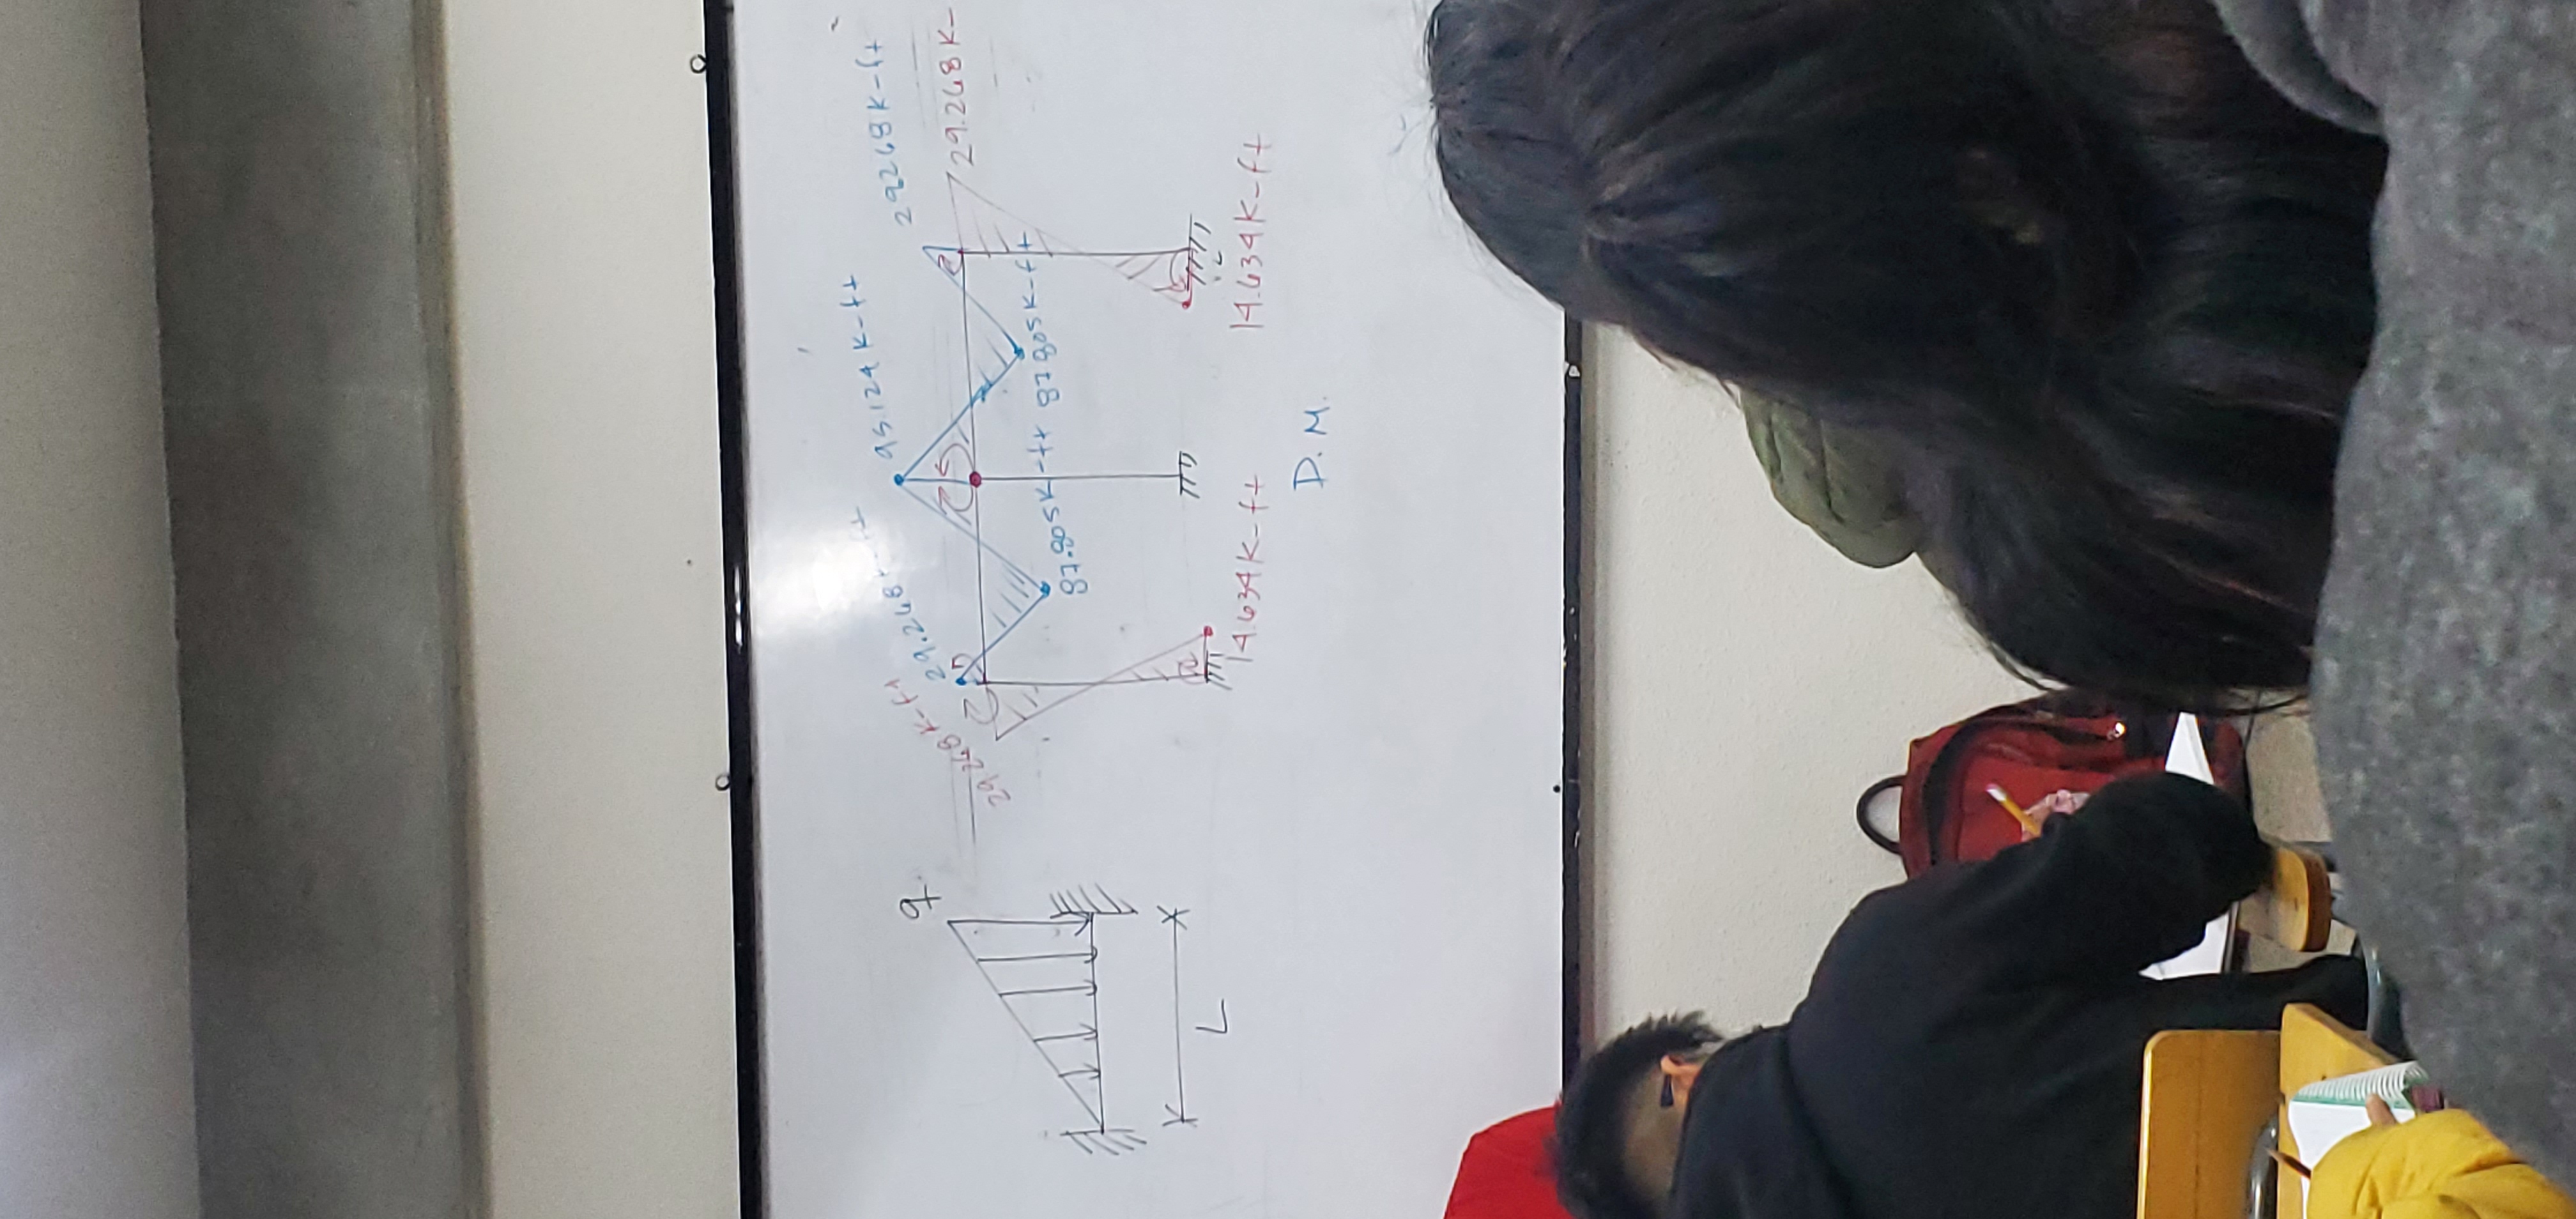 q
L
29.268 K-ft
29.268 K-ft
95.124 K-ft
29.268 K-ft
29.268 K-
87.805 K-ft
87.805 K-ft
14.634 K-ft
14.634 K-ft
D.M.